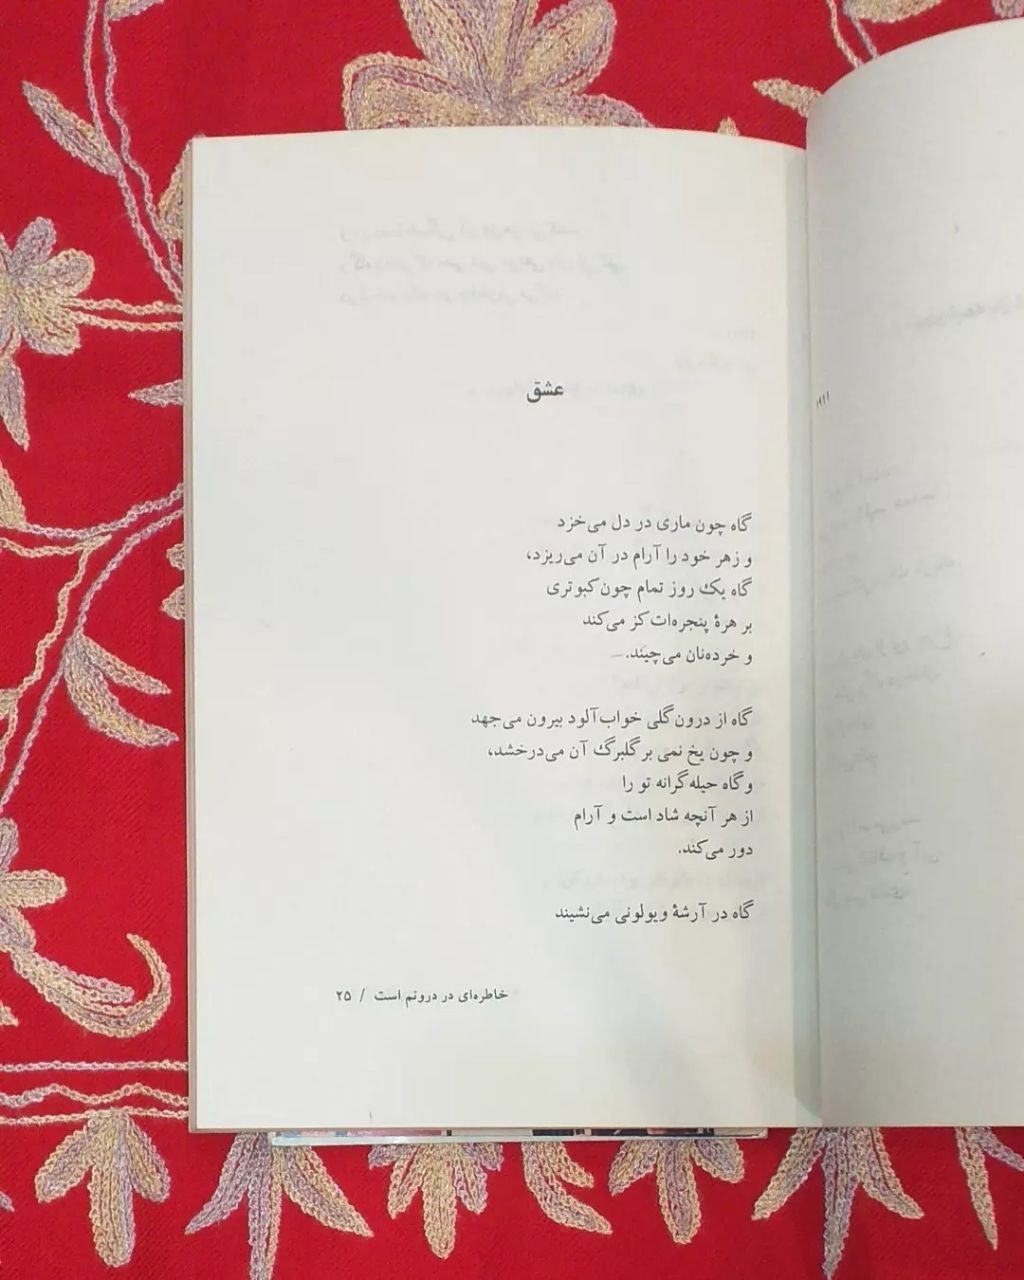 عشق
گاه چون ماری در دل می‌خزد
و زهر خود را آرام در آن می‌ریزد،
گاه یک روز تمام چون کبوتری
بر هرهٔ پنجره‌ات کز می‌کند
و خرده‌نان می‌چیند.
گاه از درون گلی خواب‌آلود بیرون می‌جهد
و چون یخ نمی بر گلبرگ آن می‌درخشد،
و گاه حیله‌گرانه تو را
از هر آنچه شاد است و آرام
دور می‌کند.
گاه در آرشهٔ ویولونی می‌نشیند
خاطره‌ای در درونم است / ۲۵
۱۹۱۱